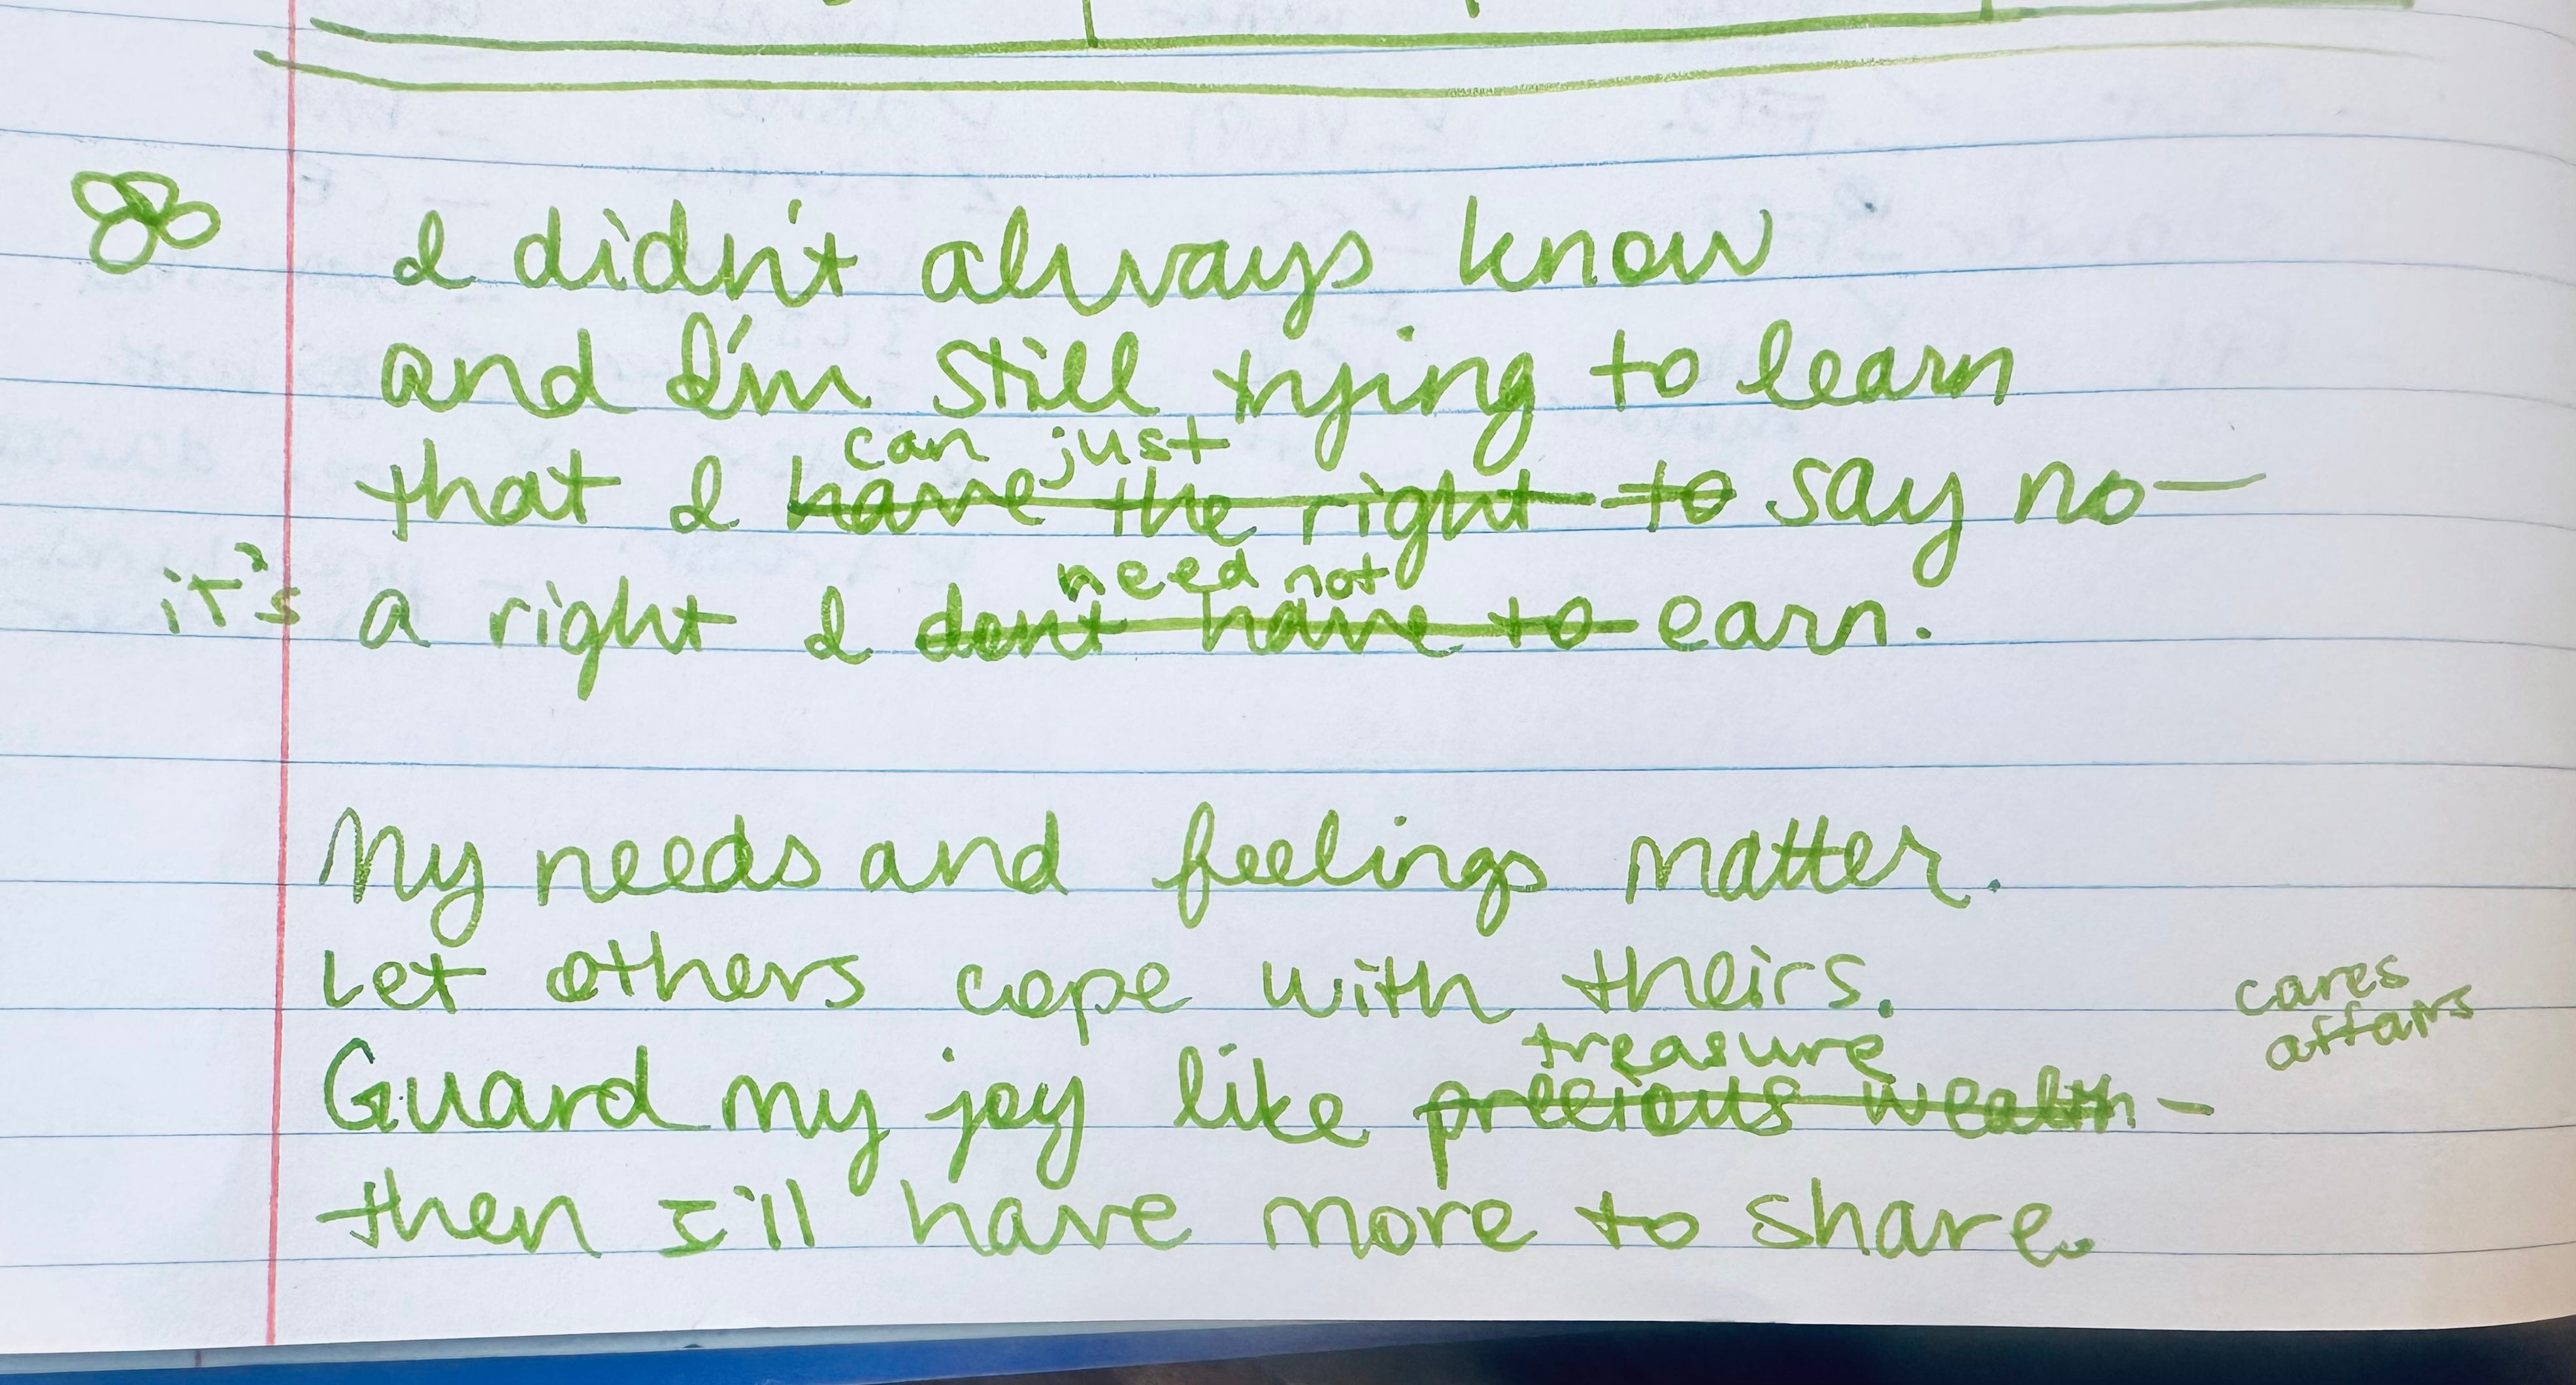 I didn't always know
and I'm still trying to learn
can just
that I have the right to say no—
need not
it's a right I don't have to earn.
My needs and feelings matter.
Let others cope with theirs.
cares
affairs
treasure
Guard my joy like precious wealth -
then I'll have more to share.